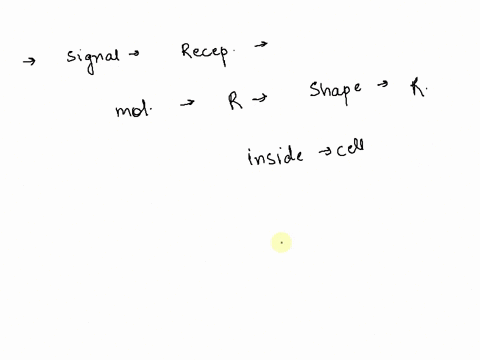 → Signal → Recep. →
mol. → R → Shape → R.
inside → cell